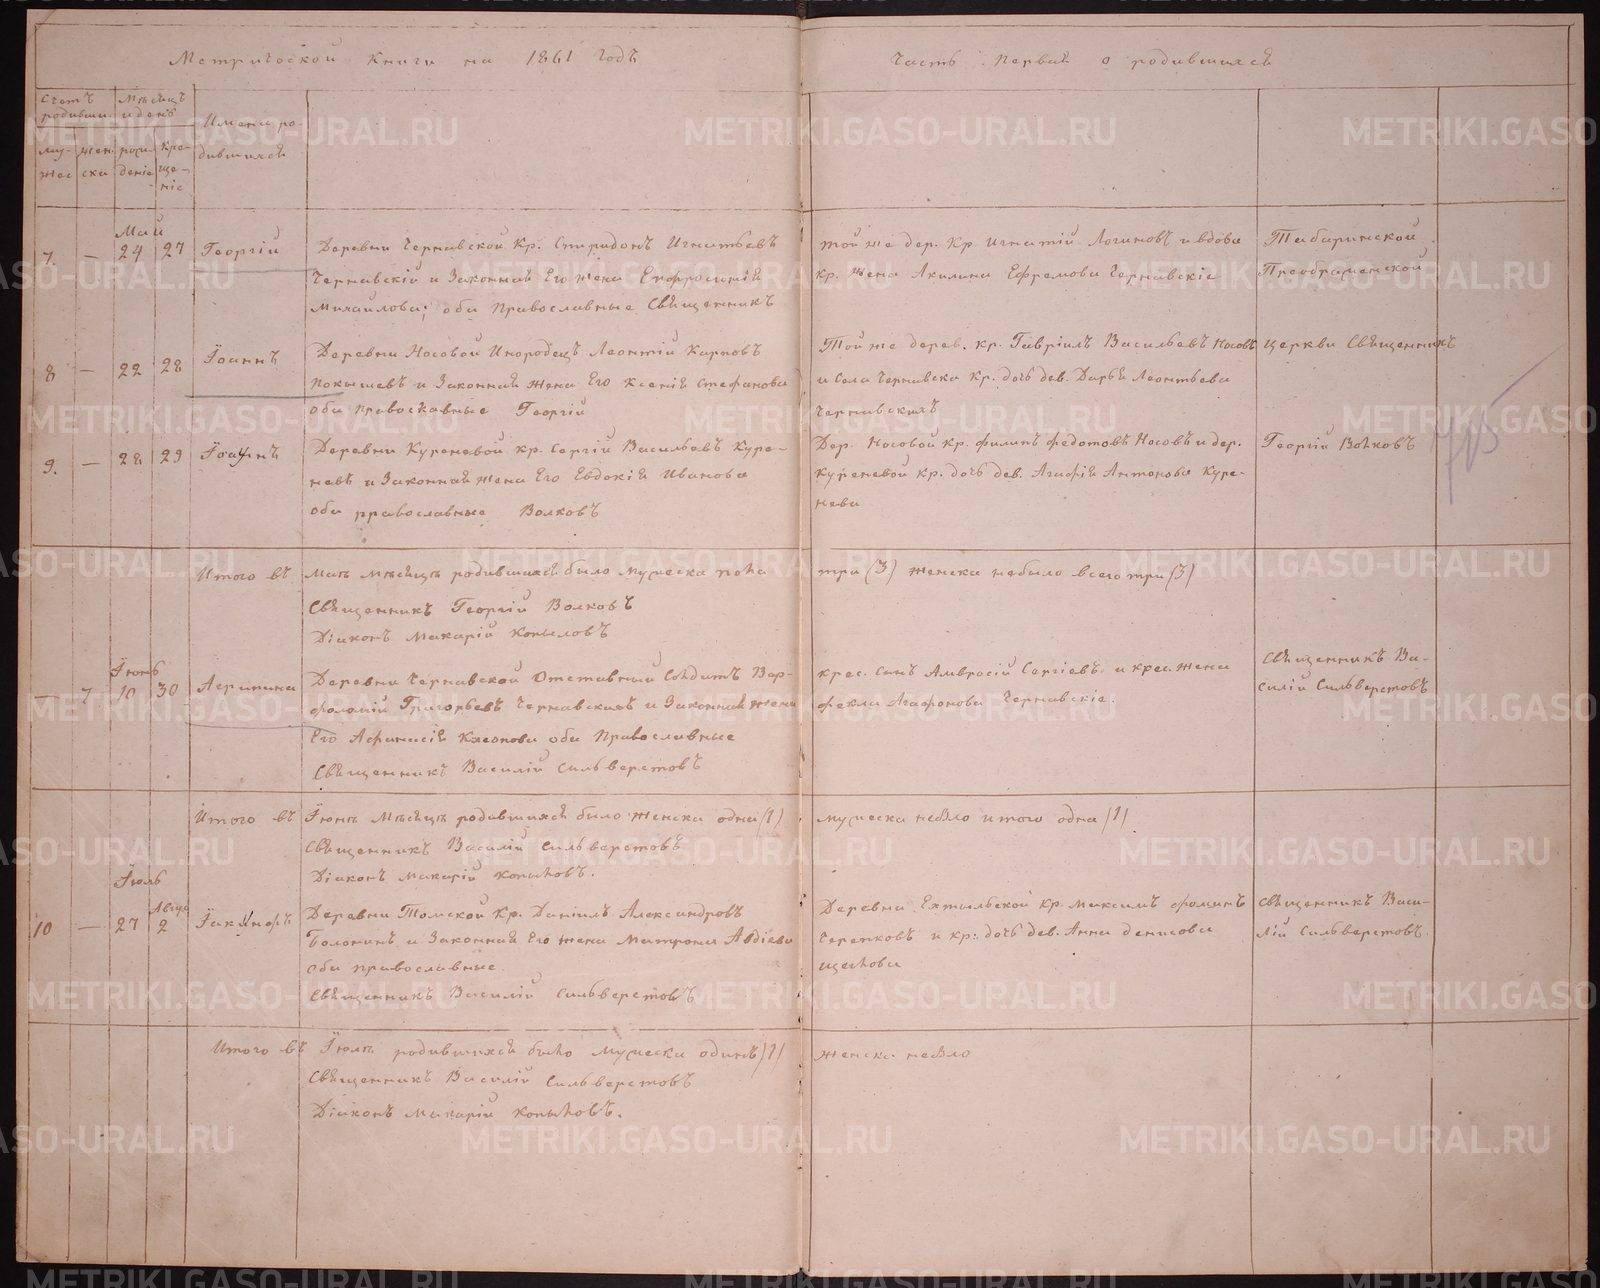 Метрической книги на 1861 годъ
Часть первая о родившихся
Счетъ родивши
Мѣсяцъ и день
Имена ро-
дившихся
муж
жен
рож
кре-
жес
ски
деніе
ще-
ніе
Май
7 — 24 27 Георгій
Деревни Чернавской Кр. Спиридонъ Игнатьевъ
Чернавскій и Законная Его жена Епфросинія
Михайлова; оба православные Священникъ
той же дер. Кр. Игнатій Логиновъ и вдова
кр. жена Акилина Ефремова Чернавскіе
Табаринской
Преображенской
8 — 22 28 Іоаннъ
Деревни Носовой Инородецъ Леонтій Карповъ
Покышевъ и Законная жена Его Ксенія Стефанова
оба православные Георгій
Той же дерев. кр. Гавріилъ Васильевъ Носовъ
и Села Чернавска Кр. дочь дев. Дарья Леонтьева
Чернавскихъ
церкви Священникъ
9. — 28 29 Іоаннъ
Деревни Куреневой кр. Сергій Васильевъ Куре-
невъ и Законная жена Его Евдокія Иванова
оба православные Волковъ
Дер. Носовой кр. Филипъ Федотовъ Носовъ и дер.
Куреневой кр. дочь дев. Агафія Антонова Куре-
нева
Георгій Волковъ
Итого въ Маѣ мѣсяцѣ родившихся было мужеска пола
три (3) женска небыло всего три (3)
Священникъ Георгій Волковъ
Діаконъ Макарій Копыловъ
Іюнь
— 7 10 30 Агрипина
Деревни Чернавской Отставный Солдатъ Вар-
фоломій Григорьевъ Чернавскихъ и Законная жена
Его Афанасія Клеопова оба Православные
Священникъ Василій Сильверстовъ
крес. Сынъ Амвросій Сергіевъ и крес. жена
Фекла Агафонова Чернавскіе.
Священникъ Ва-
силій Сильверстовъ
Итого въ Іюнѣ Мѣсяцѣ родившихся было женска одна (1)
мужеска небыло итого одна (1)
Священникъ Василій Сильверстовъ
Діаконъ Макарій Копыловъ.
Іюль
Авгус
10 — 27 2 Іакинфъ
Деревни Томской Кр. Даніилъ Александровъ
Болонинъ и Законная Его жена Матрона Авдіева
оба православные.
Священникъ Василій Сильверстовъ
Деревни Ехтыльской кр. Максимъ Фоминъ
Черепковъ и кр: дочь дев. Анна Денисова
Щеглова
Священникъ Васи-
лій Сильверстовъ.
Итого въ Іюлѣ родившихся было мужеска одинъ (1)
женска небыло
Священникъ Василій Сильверстовъ
Діаконъ Макарій Копыловъ.